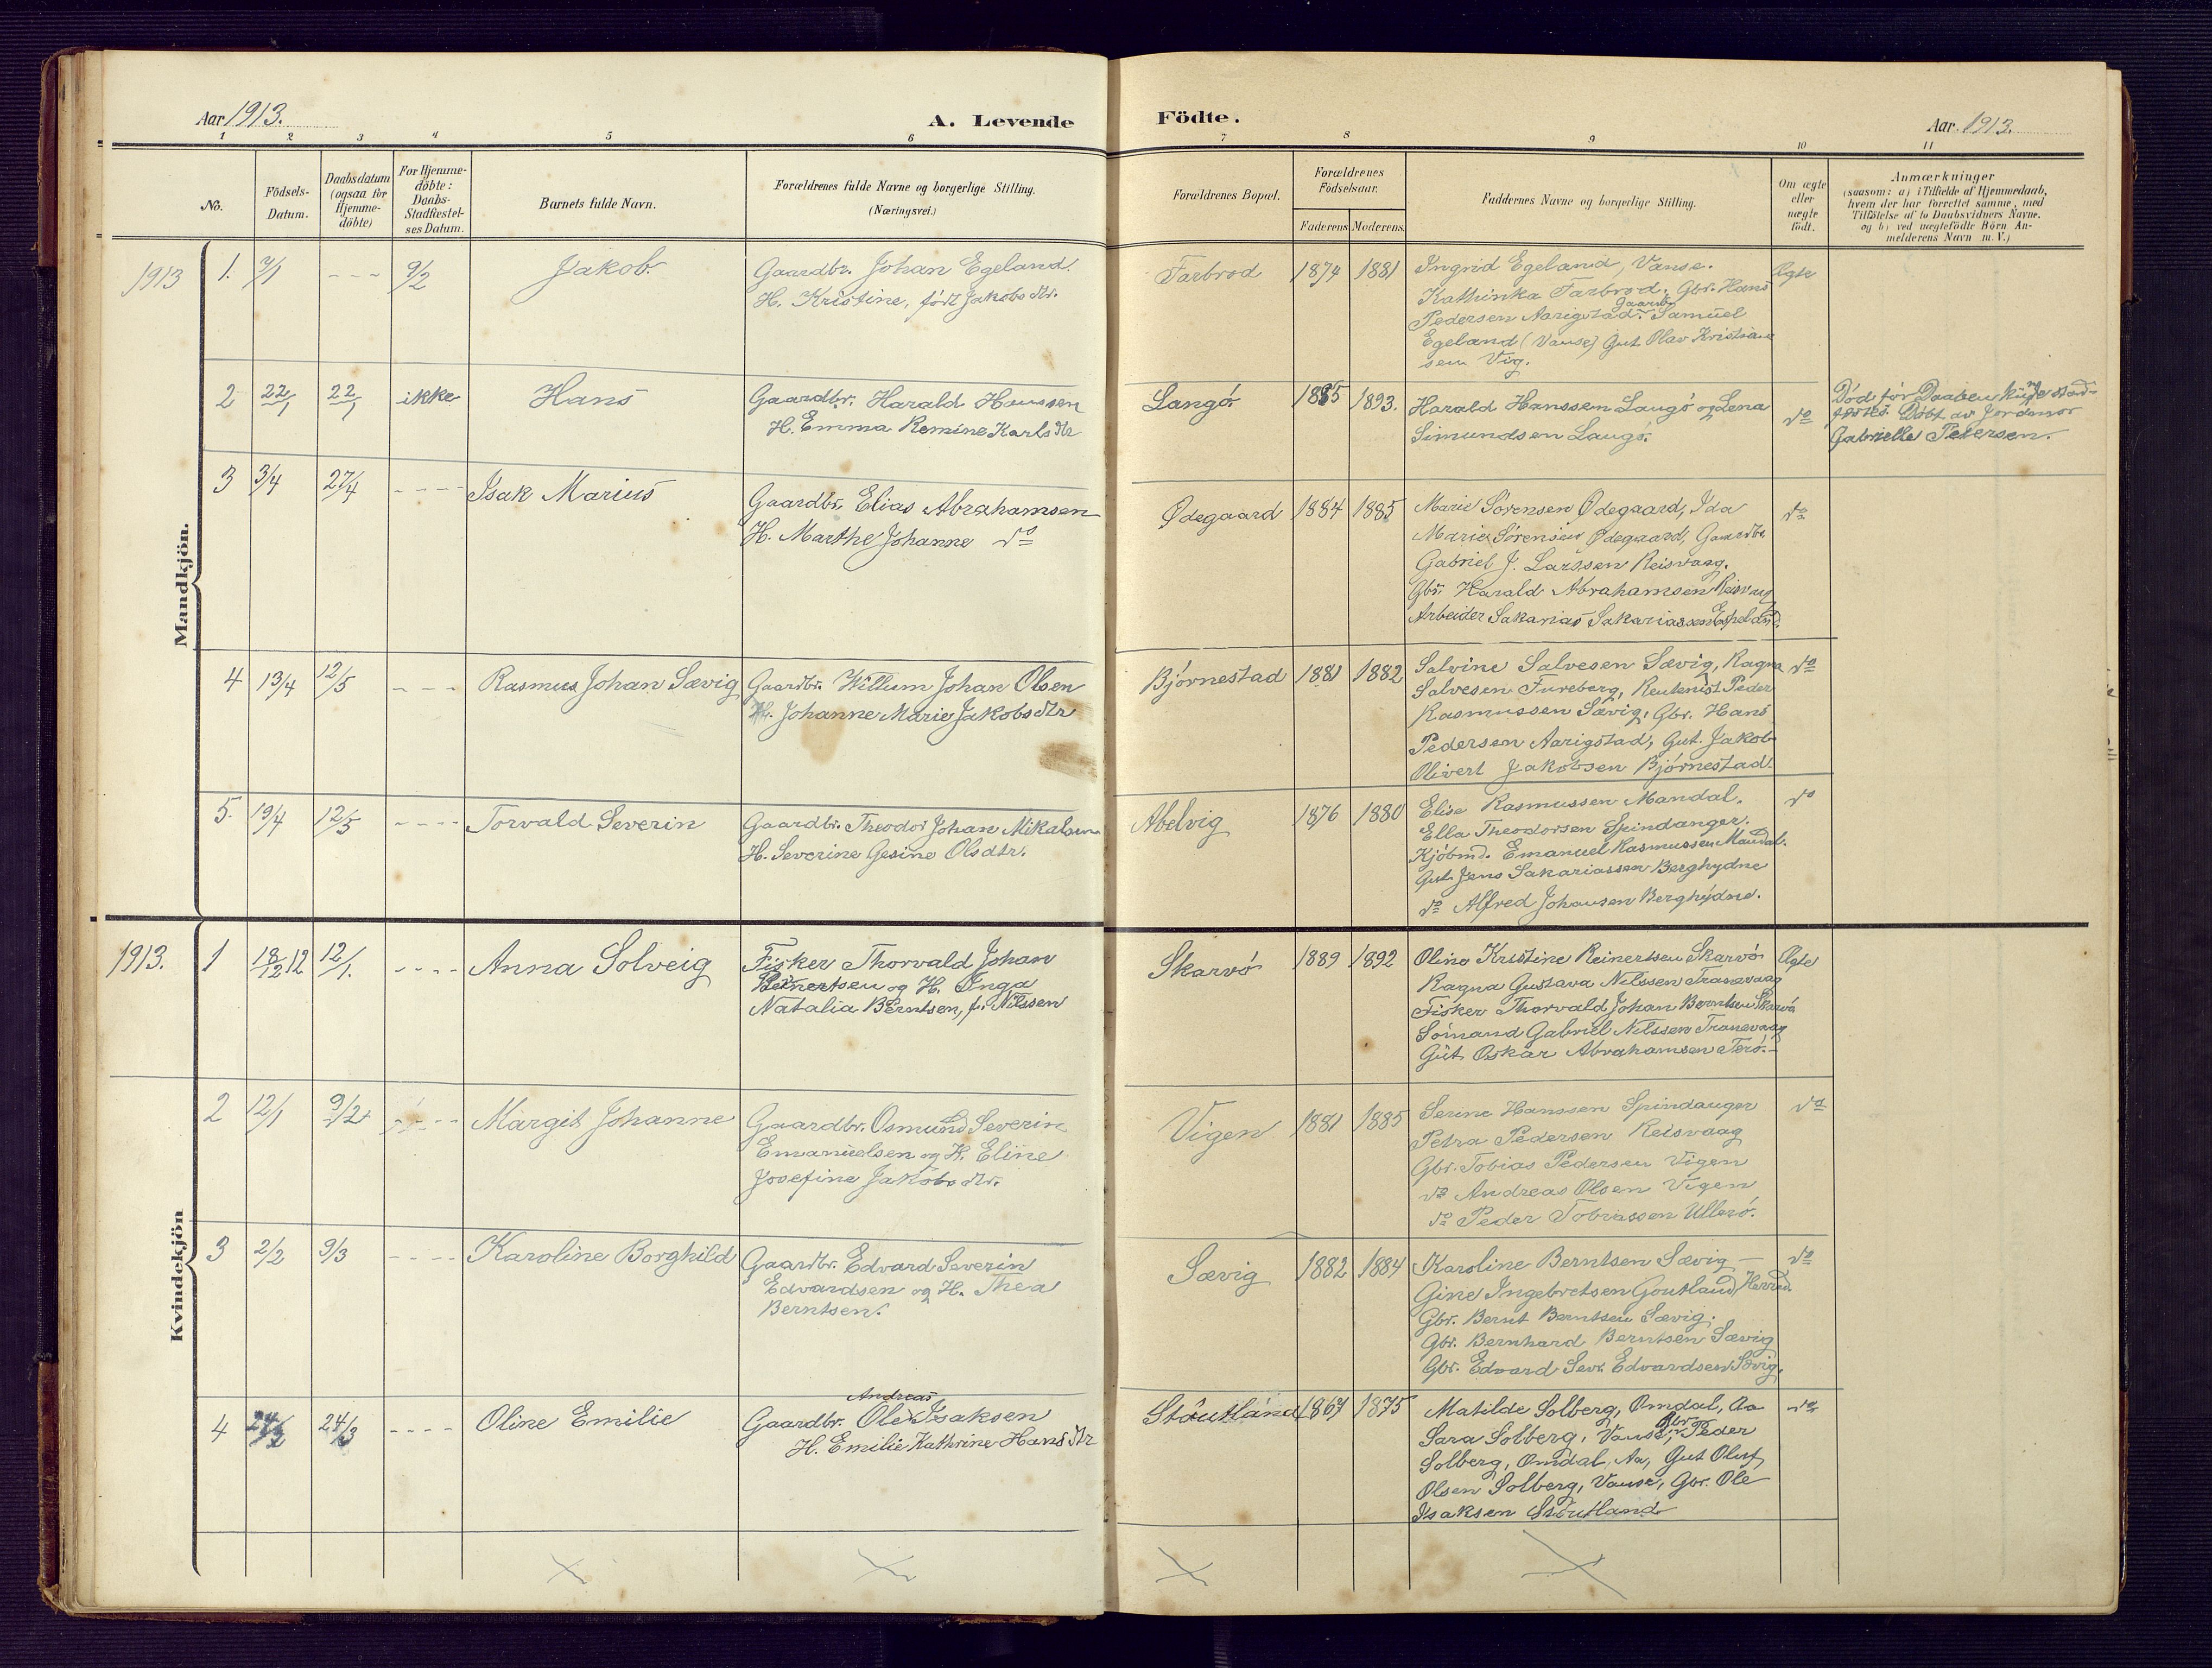 Aar 1913.
A. Levende
Födte.
Aar. 1913.
1 2 3 4 5 6 7 8 9 10 11
No.
Födsels-
Datum.
Daabsdatum
(ogsaa for
Hjemme-
döbte)
For Hjemme-
döbte:
Daabs-
Stadfæstel-
ses Datum.
Barnets fulde Navn.
Forældrenes fulde Navne og borgerlige Stilling.
(Næringsvei.)
Forældrenes Bopæl.
Forældrenes
Födselsaar.
Faderens Moderens
Faddernes Navne og borgerlige Stilling.
Om ægte
eller
uægte
födt.
Anmærkninger
(saasom: a) i Tilfælde af Hjemmedaab,
hvem der har forrettet samme, med
Tilföielse af to Daabsvidners Navne.
og b) ved uægtefödte Börn An-
melderens Navn m. V.)
Mandkjön.
1913 1. 7/1 - - - 9/2 Jakob.
Gaardbr. Johan Egeland.
H. Kristine, född Jakobsdtr.
Farbrod 1874 1881
Ingrid Egeland, Vanse.
Kathinka Farbrod. Gbr. Hans
Pedersen Aarigstad. Gaardb. Samuel
Egeland (Vanse) Gut Olav Kristian-
sen Vig.
Ægte
2 22/1 22/1 ikke Hans
Gaardbr. Harald Hanssen
H. Emma Remine Karlsdtr
Langö. 1885 1893.
Harald Hanssen Langö og Lena
Simundsen Langö.
do
Död för Daaben kunde stad-
fæstes. Döbt av Jordmor
Gabrielle Petersen.
3 3/4 27/4 - - - - Isak Marius
Gaardbr. Elias Abrahamsen
H. Marthe Johanne do
Ødegaard 1884 1885
Marie Sörensen Ødegaard, Ida
Marie Sörensen Ødegaard, Gaardbr.
Gabriel J. Larssen Reisvaag.
Gbr. Harald Abrahamsen Reisvaag
Arbeider Sakarias Sakariassen Espeland.
do
4 13/4 12/5 - - - Rasmus Johan Sævig
Gaardbr. Willum Johan Olsen
H. Johanne Marie Jakobsdtr
Björnestad 1881 1882
Salvine Salvesen Sævig, Ragna
Salvesen Fureberg, Rentenist Peder
Rasmussen Sævig, Gbr. Hans
Pedersen Aarigstad, Gut. Jakob
Olivert Jakobsen Björnestad.
do
5. 19/4 12/5 - - - - Torvald Severin
Gaardbr. Theodor Johan Mikalsen
H. Severine Gesine Olsdtr.
Abelvig 1876 1880
Elise Rasmussen Mandal.
Ella Theodorsen Spindanger.
Kjöbmd. Emanuel Rasmussen Mandal.
Gut Jens Sakariassen Berghydne
do Alfred Johansen Berghydne.
do
Kvindekjön
1913. 1 18/12 12 12/1. - - - - Anna Solveig
Fisker Thorvald Johan
Berntsen og H. Inga
Natalia Berntsen, f. Nilssen
Skarvö 1889 1892
Oline Kristine Reinertsen Skarvö
Ragna Gustava Nilssen Tranevaag
Fisker Thorvald Johan Berntsen Skarvö
Sömand Gabriel Nilssen Tranevaag
Gut Oskar Abrahamsen Terö.
Ægte
2 12/1 9/2 - - - Margit Johanne
Gaardbr. Osmund Severin
Emanuelsen og H. Eline
Josefine Jakobsdtr.
Vigen 1881 1885
Serine Hanssen Spindanger
Petra Pedersen Reisvaag
Gbr. Tobias Pedersen Vigen
do Andreas Olsen Vigen
do Peder Tobiassen Ullerö.
do
3 2/2 9/3 - - - - Karoline Borghild
Gaardbr. Edvard Severin
Edvardsen og H. Thea
Berntsen.
Sævig 1882 1884
Karoline Berntsen Sævig
Gine Ingebretsen Goutland, Herred.
Gbr. Bernt Berntsen Sævig.
Gbr. Bernhard Berntsen Sævig
Gbr. Edvard Sevr. Edvardsen Sævig.
do
4 24/2 24/3 - - - - Oline Emilie
Andreas
Gaardbr. Ole Isaksen
H. Emilie Kathrine Hansdtr
Stöutland 1867 1875
Matilde Solberg, Omdal, Aa
Sara Solberg, Vanse, Gbr. Peder
Solberg, Omdal, Aa, Gut Oluf
Olsen Solberg, Vanse, Gbr. Ole
Isaksen Stöutland
do